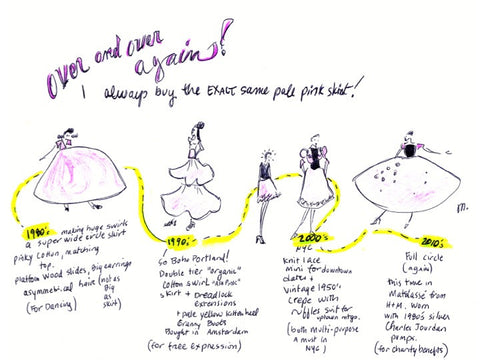 Over and over
again!
I always buy the EXACT same pale pink skirt!
1980's making huge swirls
a super wide circle skirt
pinky cotton, matching
top.
platform wood slides, big earrings
asymmetrical hair (not as
big
as
skirt)
(For Dancing)
1990's
So Boho Portland!
Double tier "organic"
cotton swirl
skirt + Dreadlock
extensions
+ pale yellow kitten heel
Granny Boots
Bought in Amsterdam
(for free expression)
2000's
NYC
knit lace
mini for downtown
dates +
vintage 1950's
crepe with
ruffles suit for
uptown mtgs.
(both multi-purpose
a must in
NYC)
2010's
Full circle
(again)
this time in
Matelasse from
H+M. Worn
with 1980's silver
Charles Jourdan
pumps.
(for charity benefits)